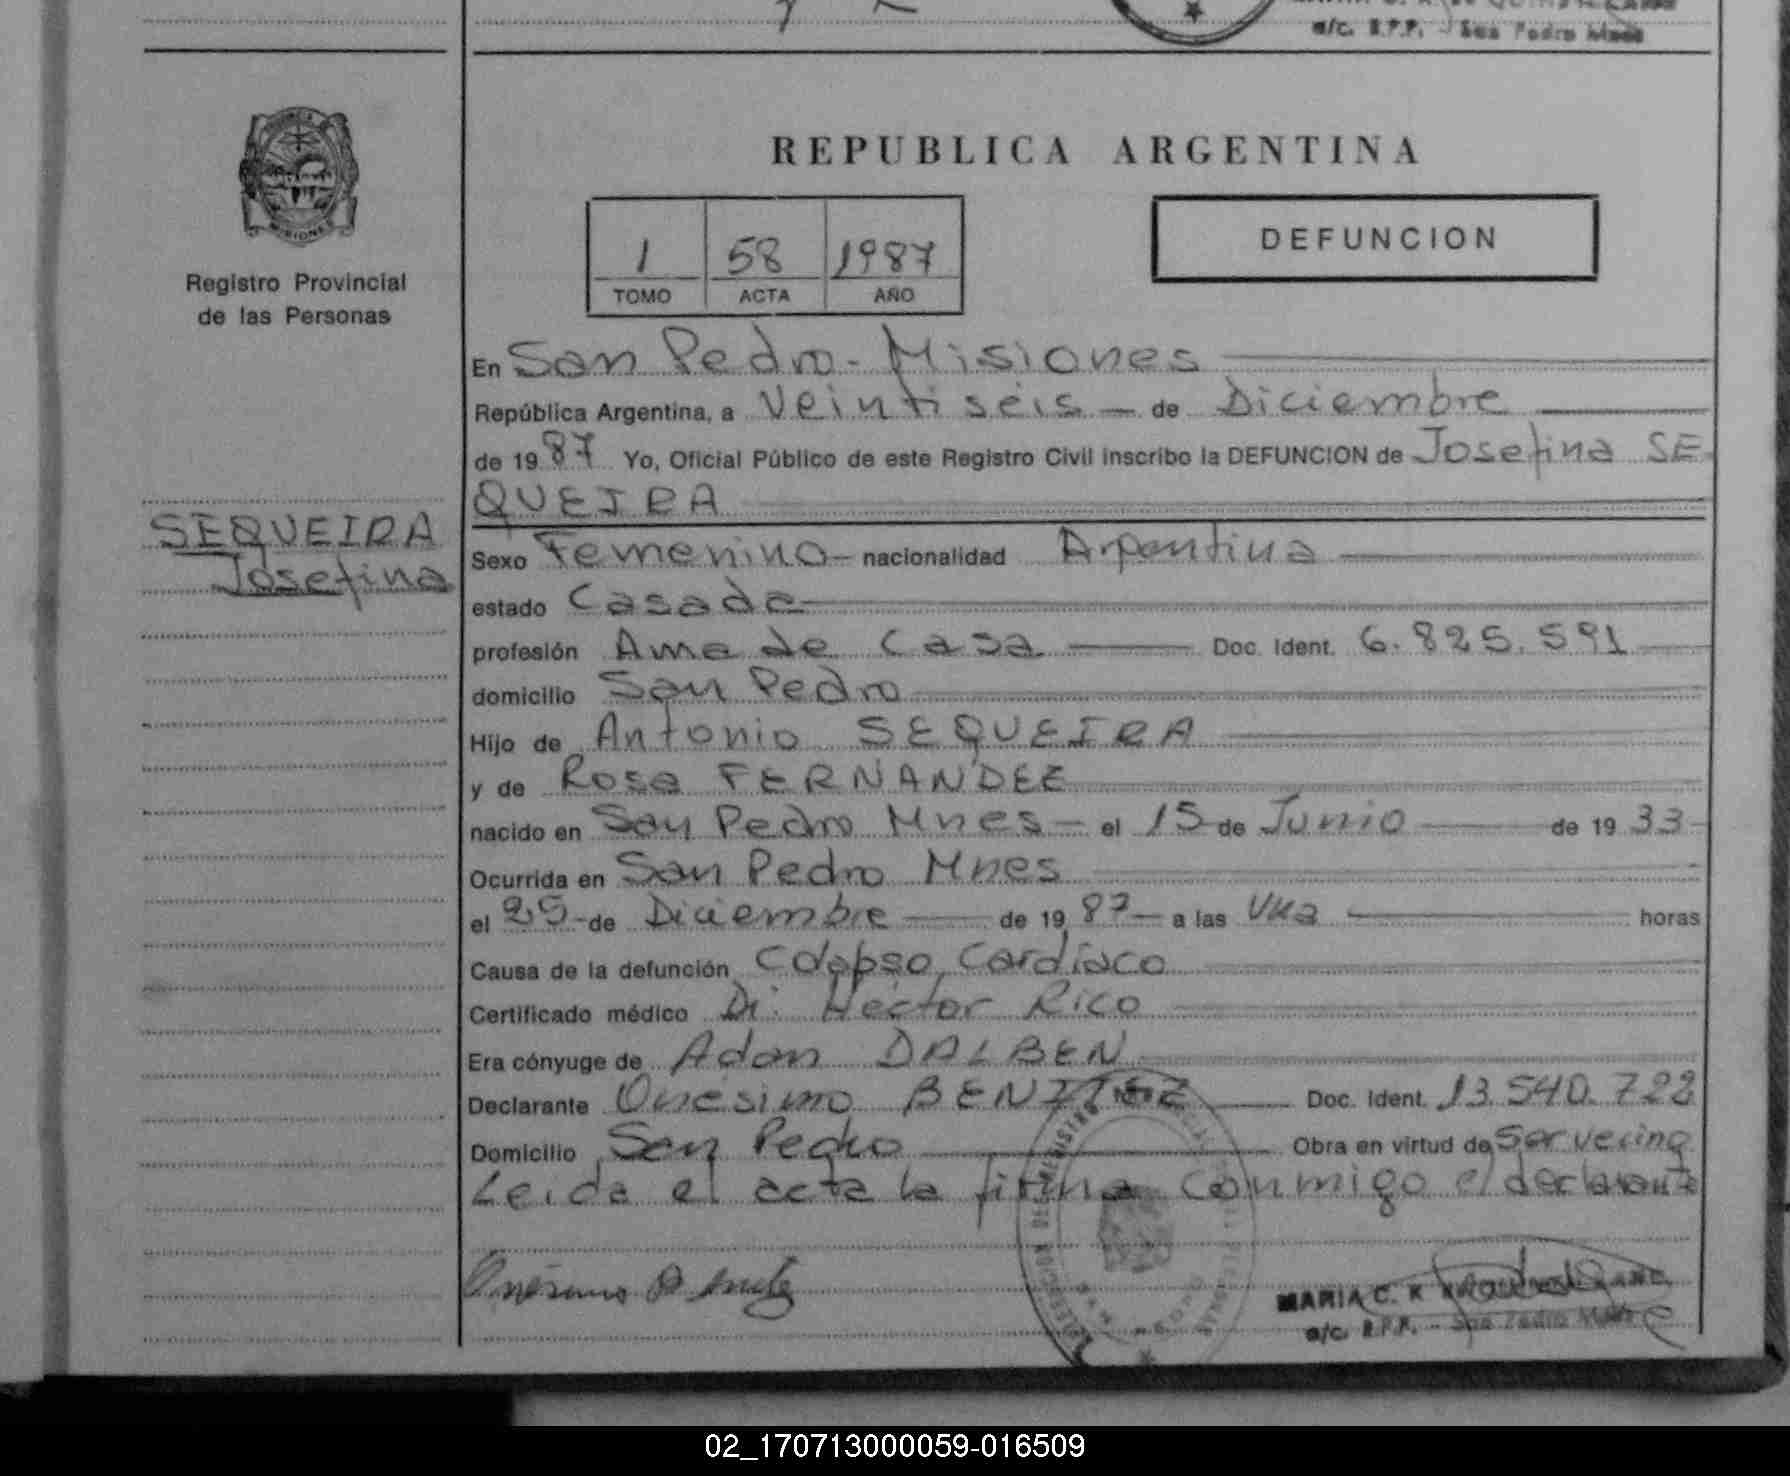 a/c. R.P.P. - San Pedro Mnes
PROVINCIA
MISIONES
Registro Provincial
de las Personas
REPUBLICA ARGENTINA
1 58 1987
TOMO ACTA AÑO
DEFUNCION
En San Pedro - Misiones
República Argentina, a Veintiséis — de Diciembre
de 19 87 Yo, Oficial Público de este Registro Civil inscribo la DEFUNCION de Josefina SE-
QUEIRA
SEQUEIRA
Josefina
Sexo Femenino - nacionalidad Argentina
estado Casada
profesión Ama de Casa — Doc. Ident. 6.825.591
domicilio San Pedro
Hijo de Antonio SEQUEIRA
y de Rosa FERNANDEZ
nacido en San Pedro Mnes - el 15 de Junio — de 19 33
Ocurrida en San Pedro Mnes
el 25 - de Diciembre — de 19 87 — a las Una — horas
Causa de la defunción Colapso Cardíaco
Certificado médico Dr. Héctor Rico
Era cónyuge de Adan DALBEN
Declarante Onésimo BENITEZ — Doc. Ident. 13.540.722
Domicilio San Pedro — Obra en virtud de Ser vecino
Leida el acta la firma conmigo el declarante
MARIA C. K
a/c. R.P.P. - San Pedro Mnes
02_170713000059-016509